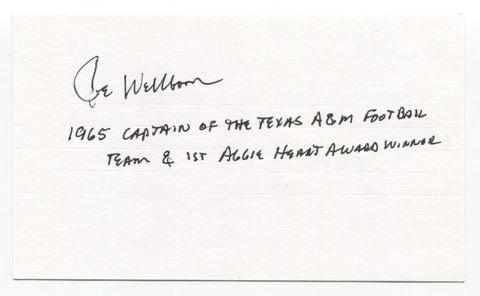 Joe Wellborn
1965 CAPTAIN OF THE TEXAS A&M FOOTBALL
TEAM & 1ST AGGIE HEART AWARD WINNOR